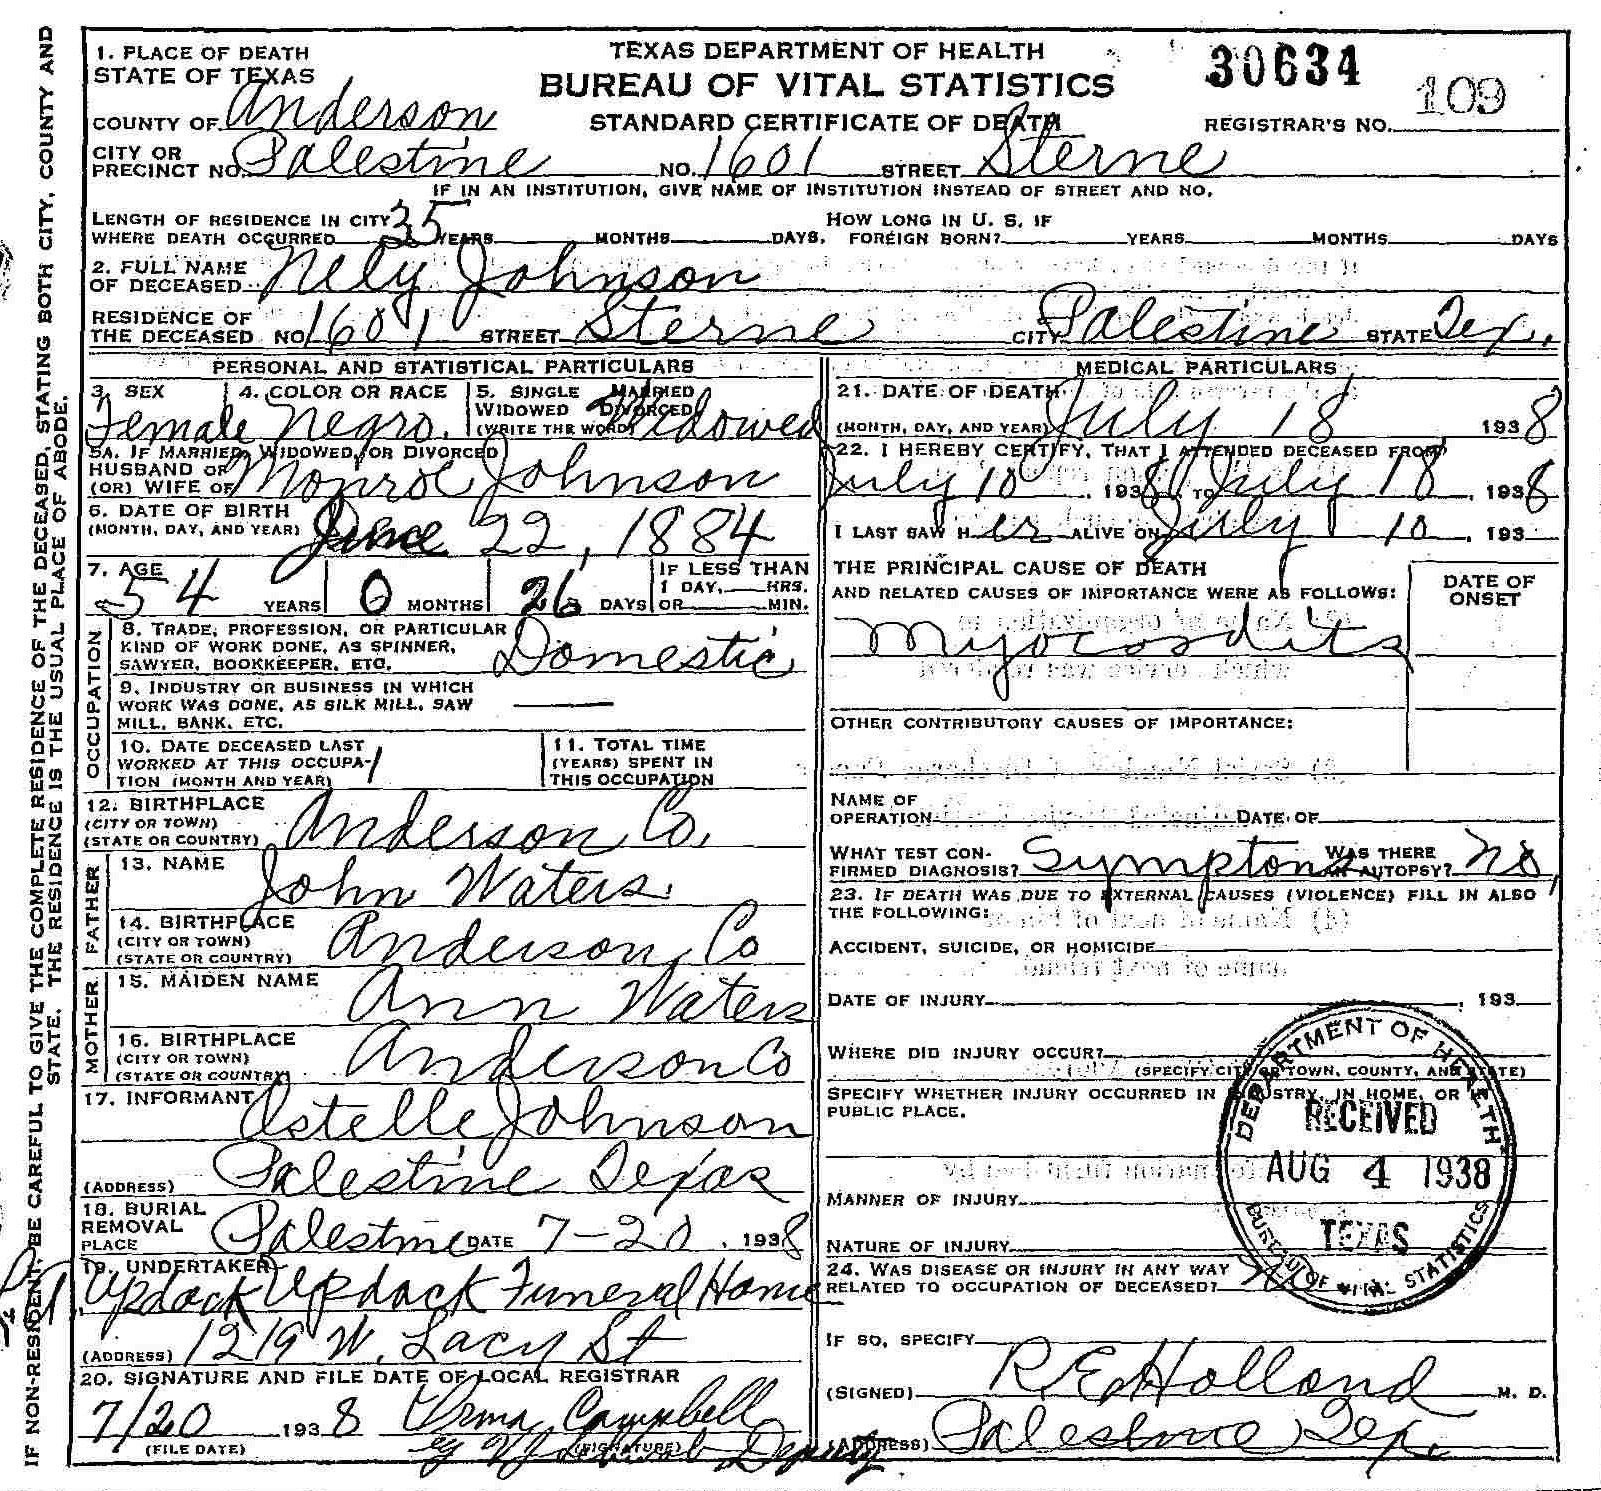 IF NON-RESIDENT, BE CAREFUL TO GIVE THE COMPLETE RESIDENCE OF THE DECEASED, STATING BOTH CITY, COUNTY AND
STATE. THE RESIDENCE IS THE USUAL PLACE OF ABODE.
1. PLACE OF DEATH
STATE OF TEXAS
TEXAS DEPARTMENT OF HEALTH
BUREAU OF VITAL STATISTICS
STANDARD CERTIFICATE OF DEATH
30634
109
REGISTRAR'S NO.
COUNTY OF Anderson
CITY OR
PRECINCT NO. Palestine NO. 1601 STREET Sterne
IF IN AN INSTITUTION, GIVE NAME OF INSTITUTION INSTEAD OF STREET AND NO.
LENGTH OF RESIDENCE IN CITY
WHERE DEATH OCCURRED 35 YEARS MONTHS DAYS.
HOW LONG IN U. S. IF
FOREIGN BORN? YEARS MONTHS DAYS
2. FULL NAME
OF DECEASED Nely Johnson
RESIDENCE OF
THE DECEASED NO. 1601 STREET Sterne CITY Palestine STATE Tex.
PERSONAL AND STATISTICAL PARTICULARS
3. SEX
Female
4. COLOR OR RACE
Negro.
5. SINGLE MARRIED
WIDOWED DIVORCED
(WRITE THE WORD) Widowed
5A. IF MARRIED, WIDOWED, OR DIVORCED
HUSBAND OF
(OR) WIFE OF Monroe Johnson
6. DATE OF BIRTH
(MONTH, DAY, AND YEAR) June 22, 1884
7. AGE
54 YEARS 0 MONTHS 26 DAYS
IF LESS THAN
1 DAY, HRS.
OR MIN.
OCCUPATION
8. TRADE, PROFESSION, OR PARTICULAR
KIND OF WORK DONE, AS SPINNER,
SAWYER, BOOKKEEPER, ETC. Domestic
9. INDUSTRY OR BUSINESS IN WHICH
WORK WAS DONE, AS SILK MILL, SAW
MILL, BANK, ETC.
10. DATE DECEASED LAST
WORKED AT THIS OCCUPA-
TION (MONTH AND YEAR)
11. TOTAL TIME
(YEARS) SPENT IN
THIS OCCUPATION
12. BIRTHPLACE
(CITY OR TOWN)
(STATE OR COUNTRY) Anderson Co.
FATHER
13. NAME
John Waters.
14. BIRTHPLACE
(CITY OR TOWN)
(STATE OR COUNTRY) Anderson Co
MOTHER
15. MAIDEN NAME
Ann Waters
16. BIRTHPLACE
(CITY OR TOWN)
(STATE OR COUNTRY) Anderson Co
17. INFORMANT Estelle Johnson
(ADDRESS) Palestine Texas
18. BURIAL
REMOVAL
PLACE Palestine DATE 7-20, 1938
19. UNDERTAKER
Updock Updock Funeral Home
(ADDRESS) 1219 W. Lacy St
20. SIGNATURE AND FILE DATE OF LOCAL REGISTRAR
7/20 1938 Orma Campbell
(FILE DATE) (SIGNATURE) Deputy
MEDICAL PARTICULARS
21. DATE OF DEATH
(MONTH, DAY, AND YEAR) July 18 1938
22. I HEREBY CERTIFY, THAT I ATTENDED DECEASED FROM
July 10, 1938, TO July 18, 1938
I LAST SAW HER ALIVE ON July 10, 193
THE PRINCIPAL CAUSE OF DEATH
AND RELATED CAUSES OF IMPORTANCE WERE AS FOLLOWS:
DATE OF
ONSET
Myocardits
OTHER CONTRIBUTORY CAUSES OF IMPORTANCE:
NAME OF
OPERATION DATE OF
WHAT TEST CON-
FIRMED DIAGNOSIS? Symptoms WAS THERE
AN AUTOPSY? No
23. IF DEATH WAS DUE TO EXTERNAL CAUSES (VIOLENCE) FILL IN ALSO
THE FOLLOWING:
ACCIDENT, SUICIDE, OR HOMICIDE
DATE OF INJURY , 193
WHERE DID INJURY OCCUR?
(SPECIFY CITY OR TOWN, COUNTY, AND STATE)
SPECIFY WHETHER INJURY OCCURRED IN INDUSTRY, IN HOME, OR IN
PUBLIC PLACE.
MANNER OF INJURY
NATURE OF INJURY
24. WAS DISEASE OR INJURY IN ANY WAY
RELATED TO OCCUPATION OF DECEASED? No
IF SO, SPECIFY
(SIGNED) R E Holland M. D.
(ADDRESS) Palestine Tex.
DEPARTMENT OF HEALTH
RECEIVED
AUG 4 1938
TEXAS
BUREAU OF VITAL STATISTICS